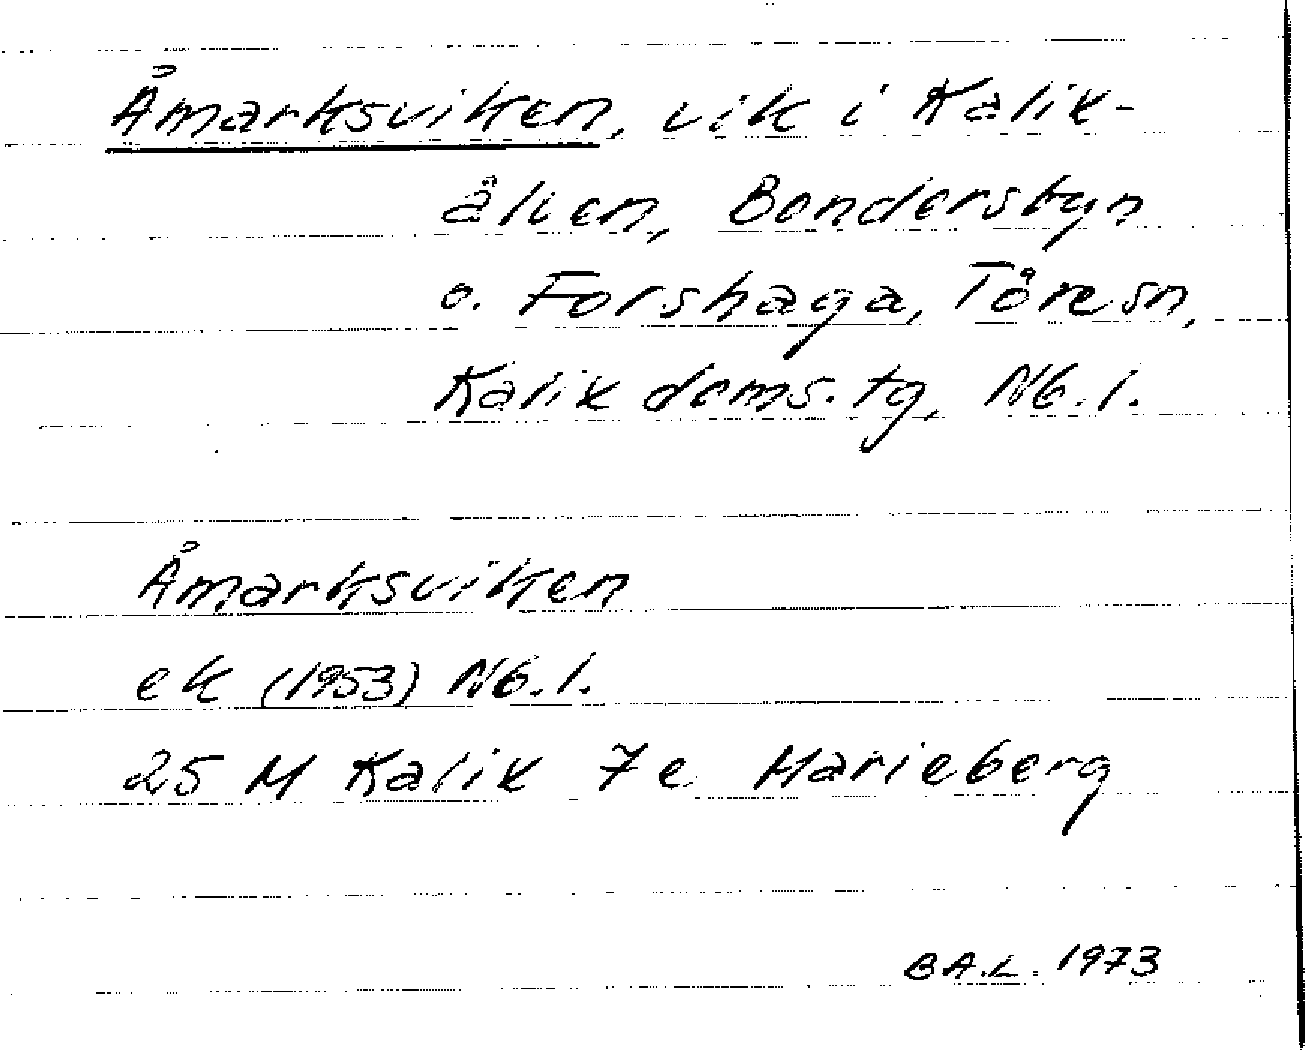 Åmarksviken, vik i Kalix-
älven, Bondersbyn
o. Forshaga, Töre sn,
Kalix doms. tg, Nb. l.
Åmarksviken
ek (1953) Nb. l.
25 M Kalix 7e Marieberg
B A.L. 1973